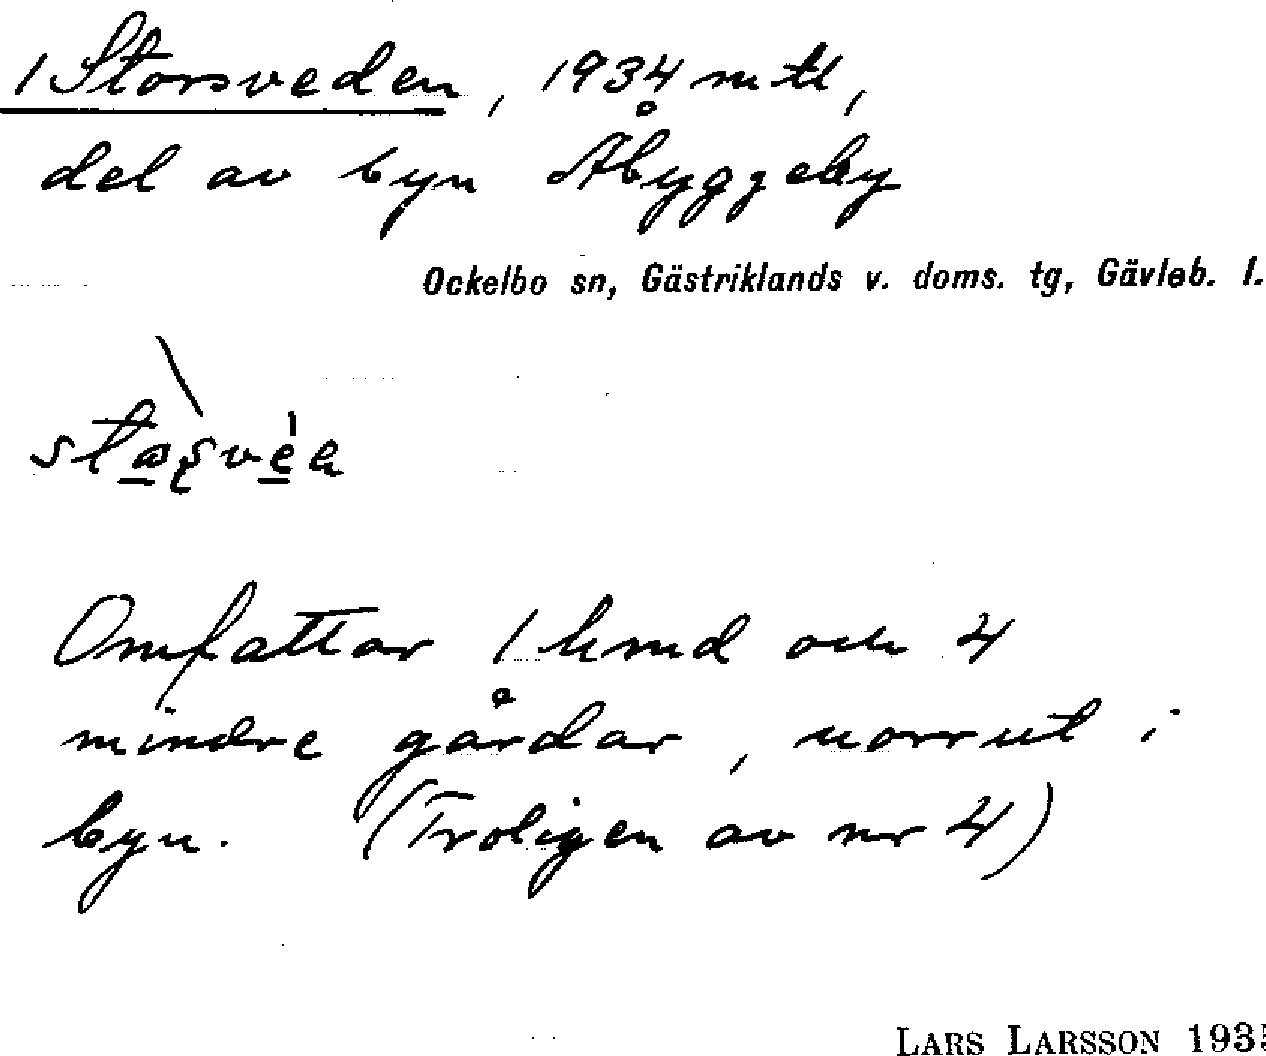 1 Storsveden, 1934 mtl,
del av byn Åbyggeby
Ockelbo sn, Gästriklands v. doms. tg, Gävleb. l.
Omfattar 1 hmd och 4
mindre gårdar, norrut i
byn. (Troligen av nr 4)
LARS LARSSON 193